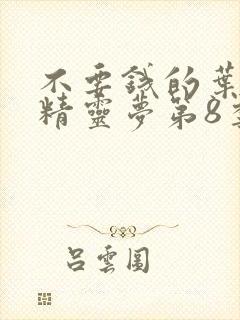 不要錢的葉
精靈夢第8季
呂雲圓